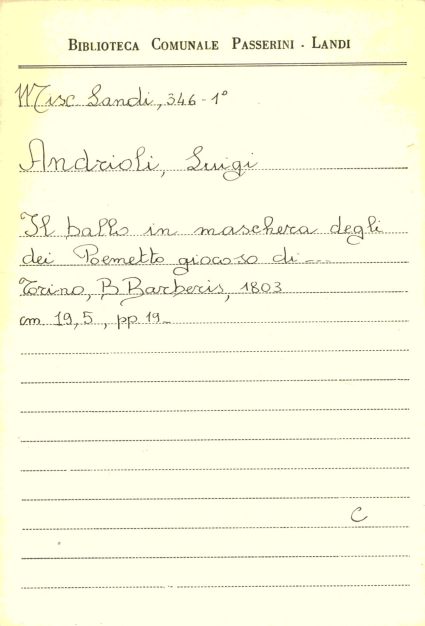 BIBLIOTECA COMUNALE PASSERINI - LANDI
Misc Landi, 346-1°
Andrioli, Luigi
Il ballo in maschera degli
dei Poemetto giocoso di ---
Torino, B Barberis, 1803
cm 19,5, pp 19-
C